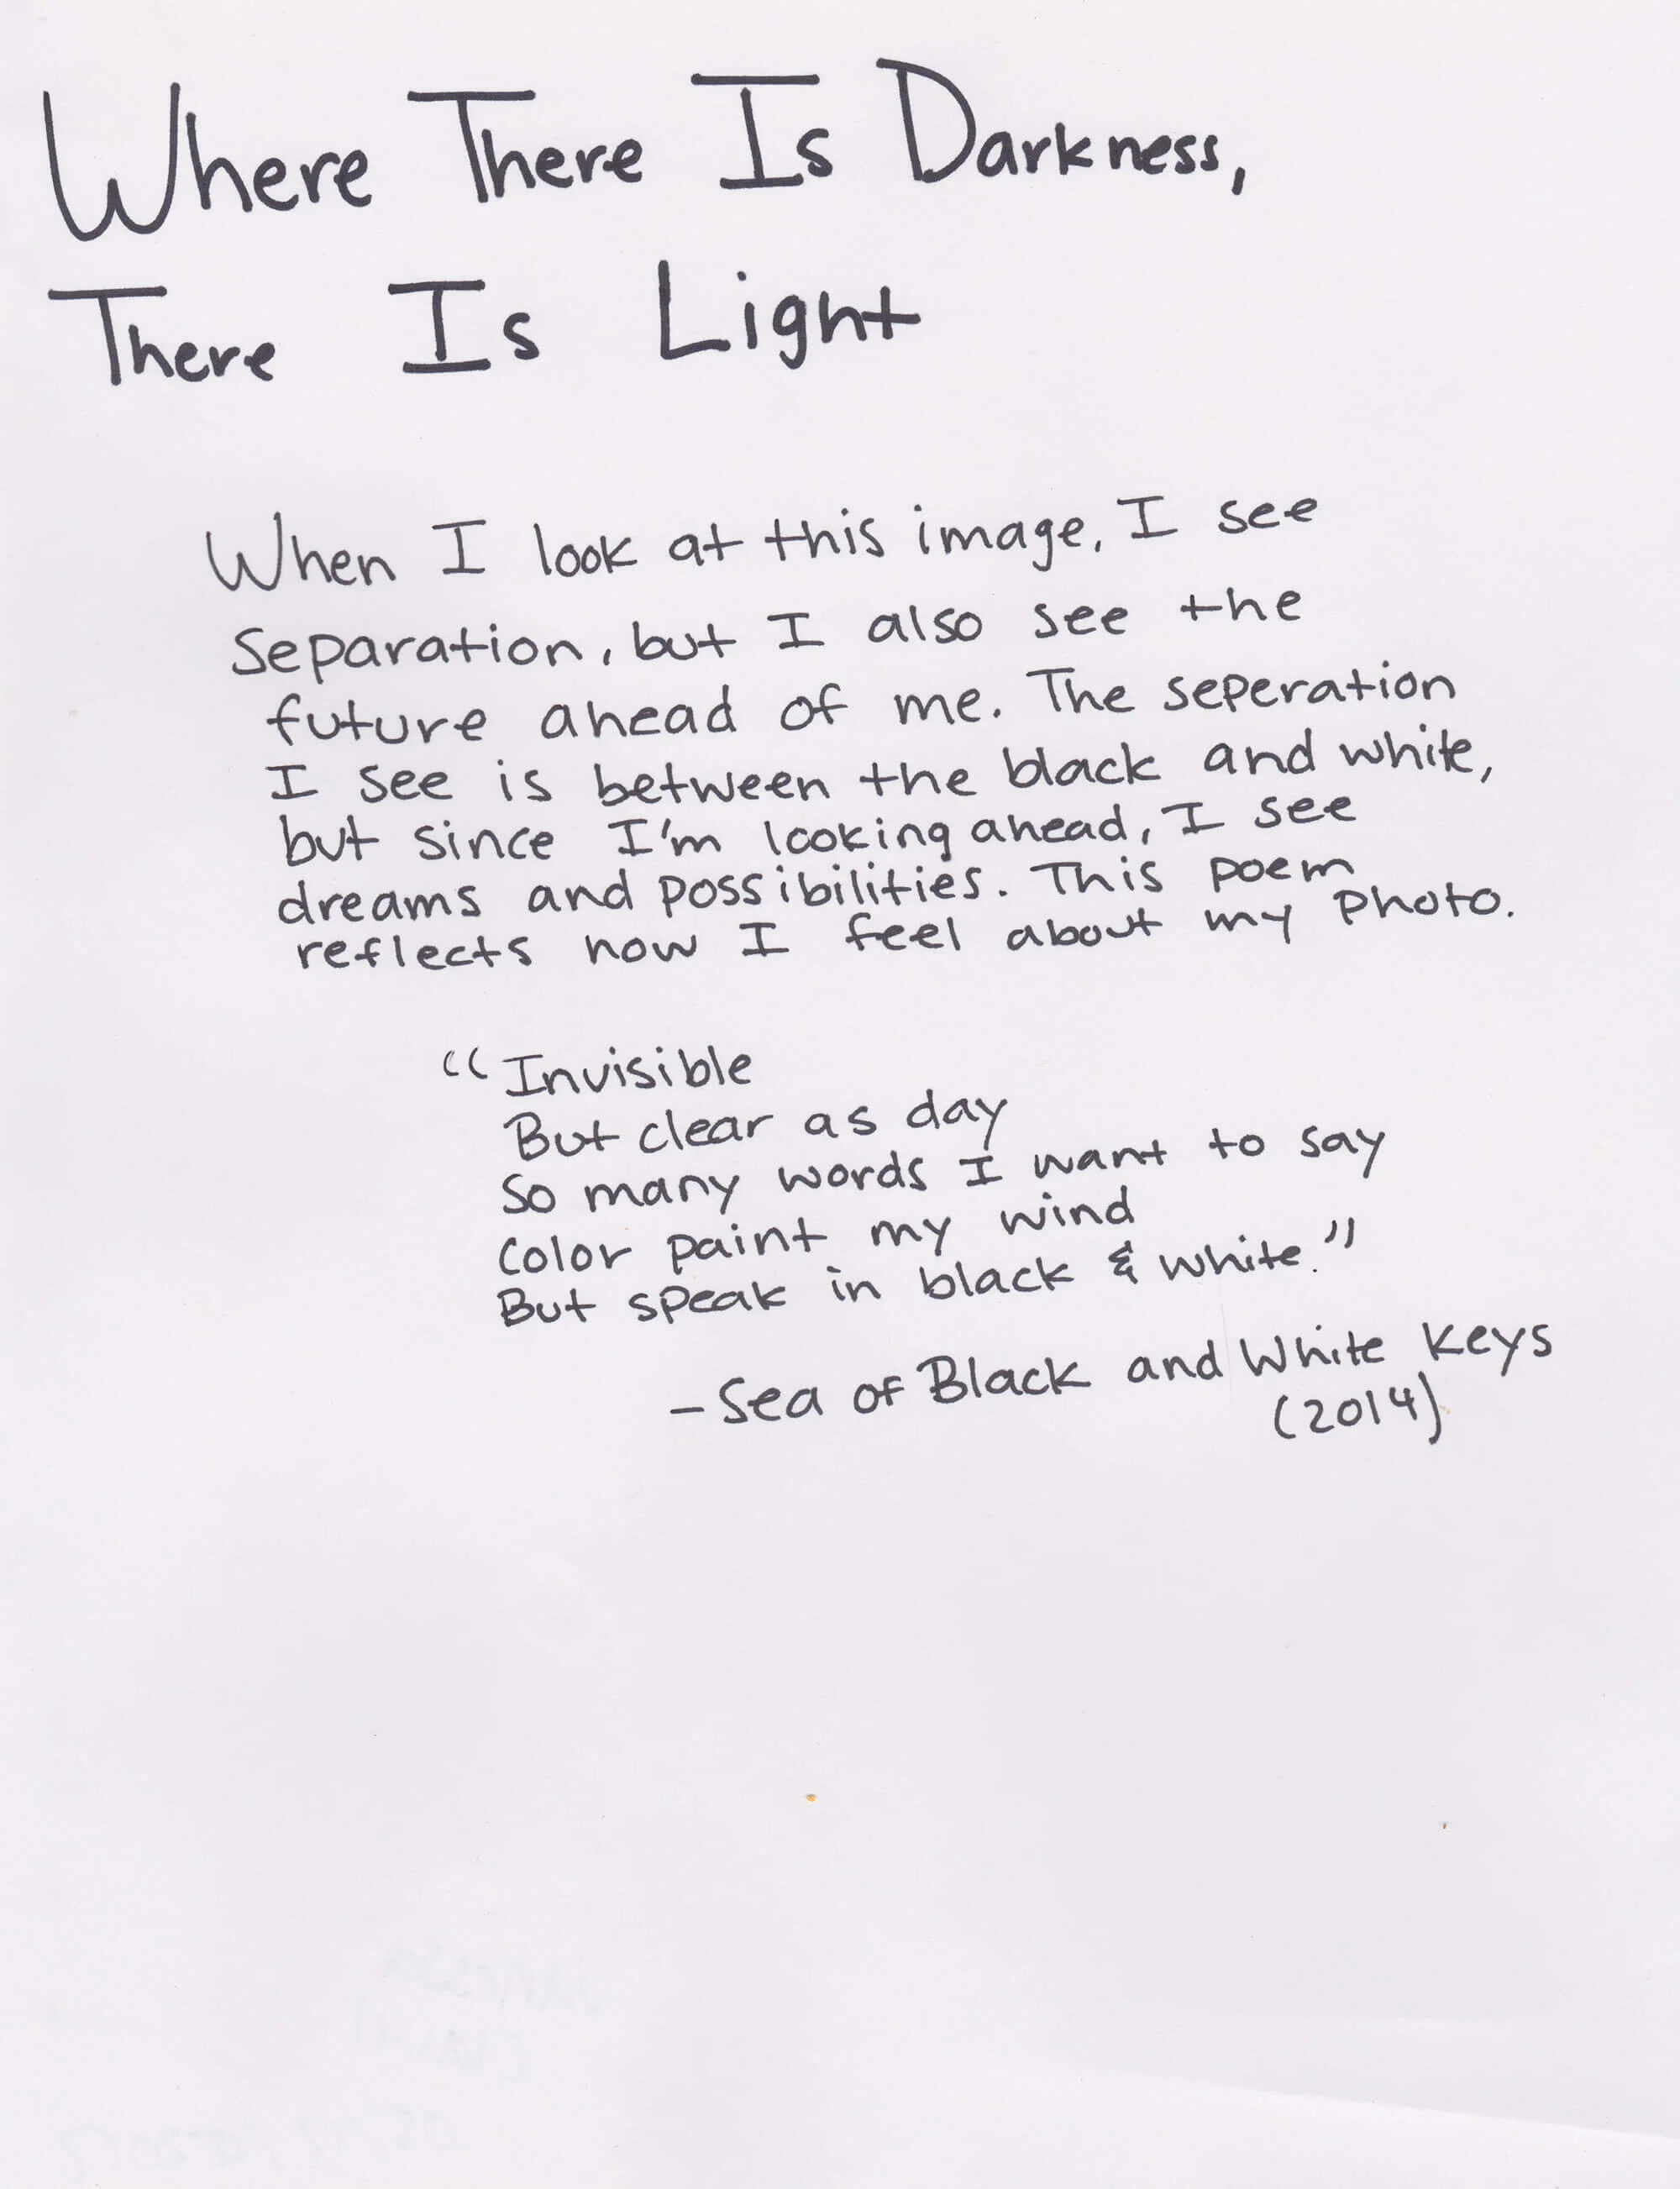 Where There Is Darkness,
There Is Light
When I look at this image, I see
separation, but I also see the
future ahead of me. The seperation
I see is between the black and white,
but since I'm looking ahead, I see
dreams and possibilities. This poem
reflects how I feel about my photo.
"Invisible
But clear as day
So many words I want to say
Color paint my wind
But speak in black & white."
- Sea of Black and White Keys
(2014)